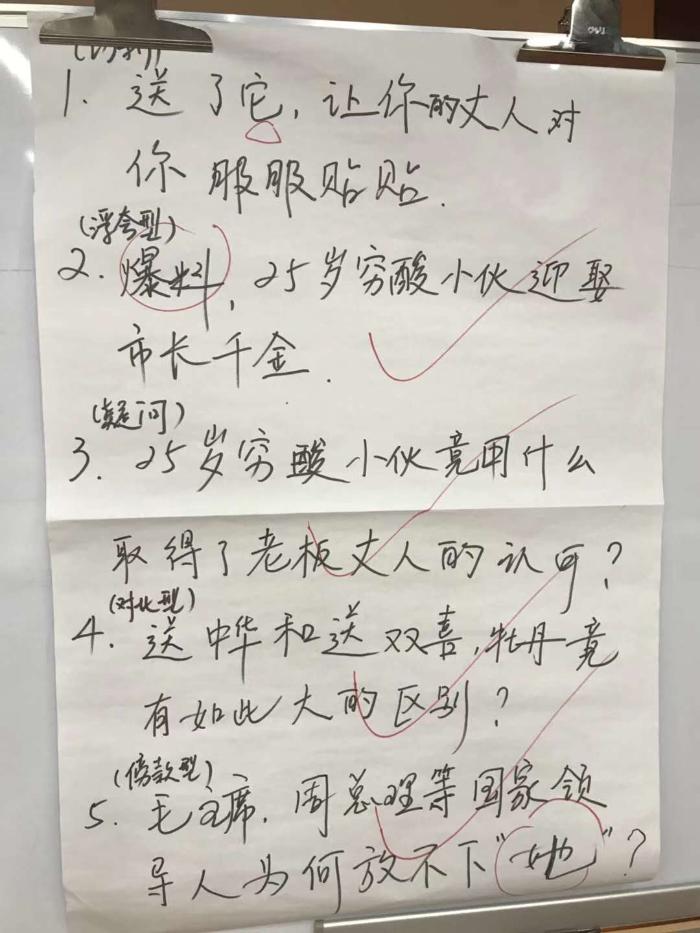 1. 送了它，让你的丈人对
你服服贴贴.
(浮夸型)
2. 爆料，25岁穷酸小伙迎娶
市长千金.
(疑问)
3. 25岁穷酸小伙竟用什么
取得了老板丈人的认可？
(对比型)
4. 送中华和送双喜，牡丹竟
有如此大的区别？
(傍款型)
5. 毛主席.周总理等国家领
导人为何放不下“她”？